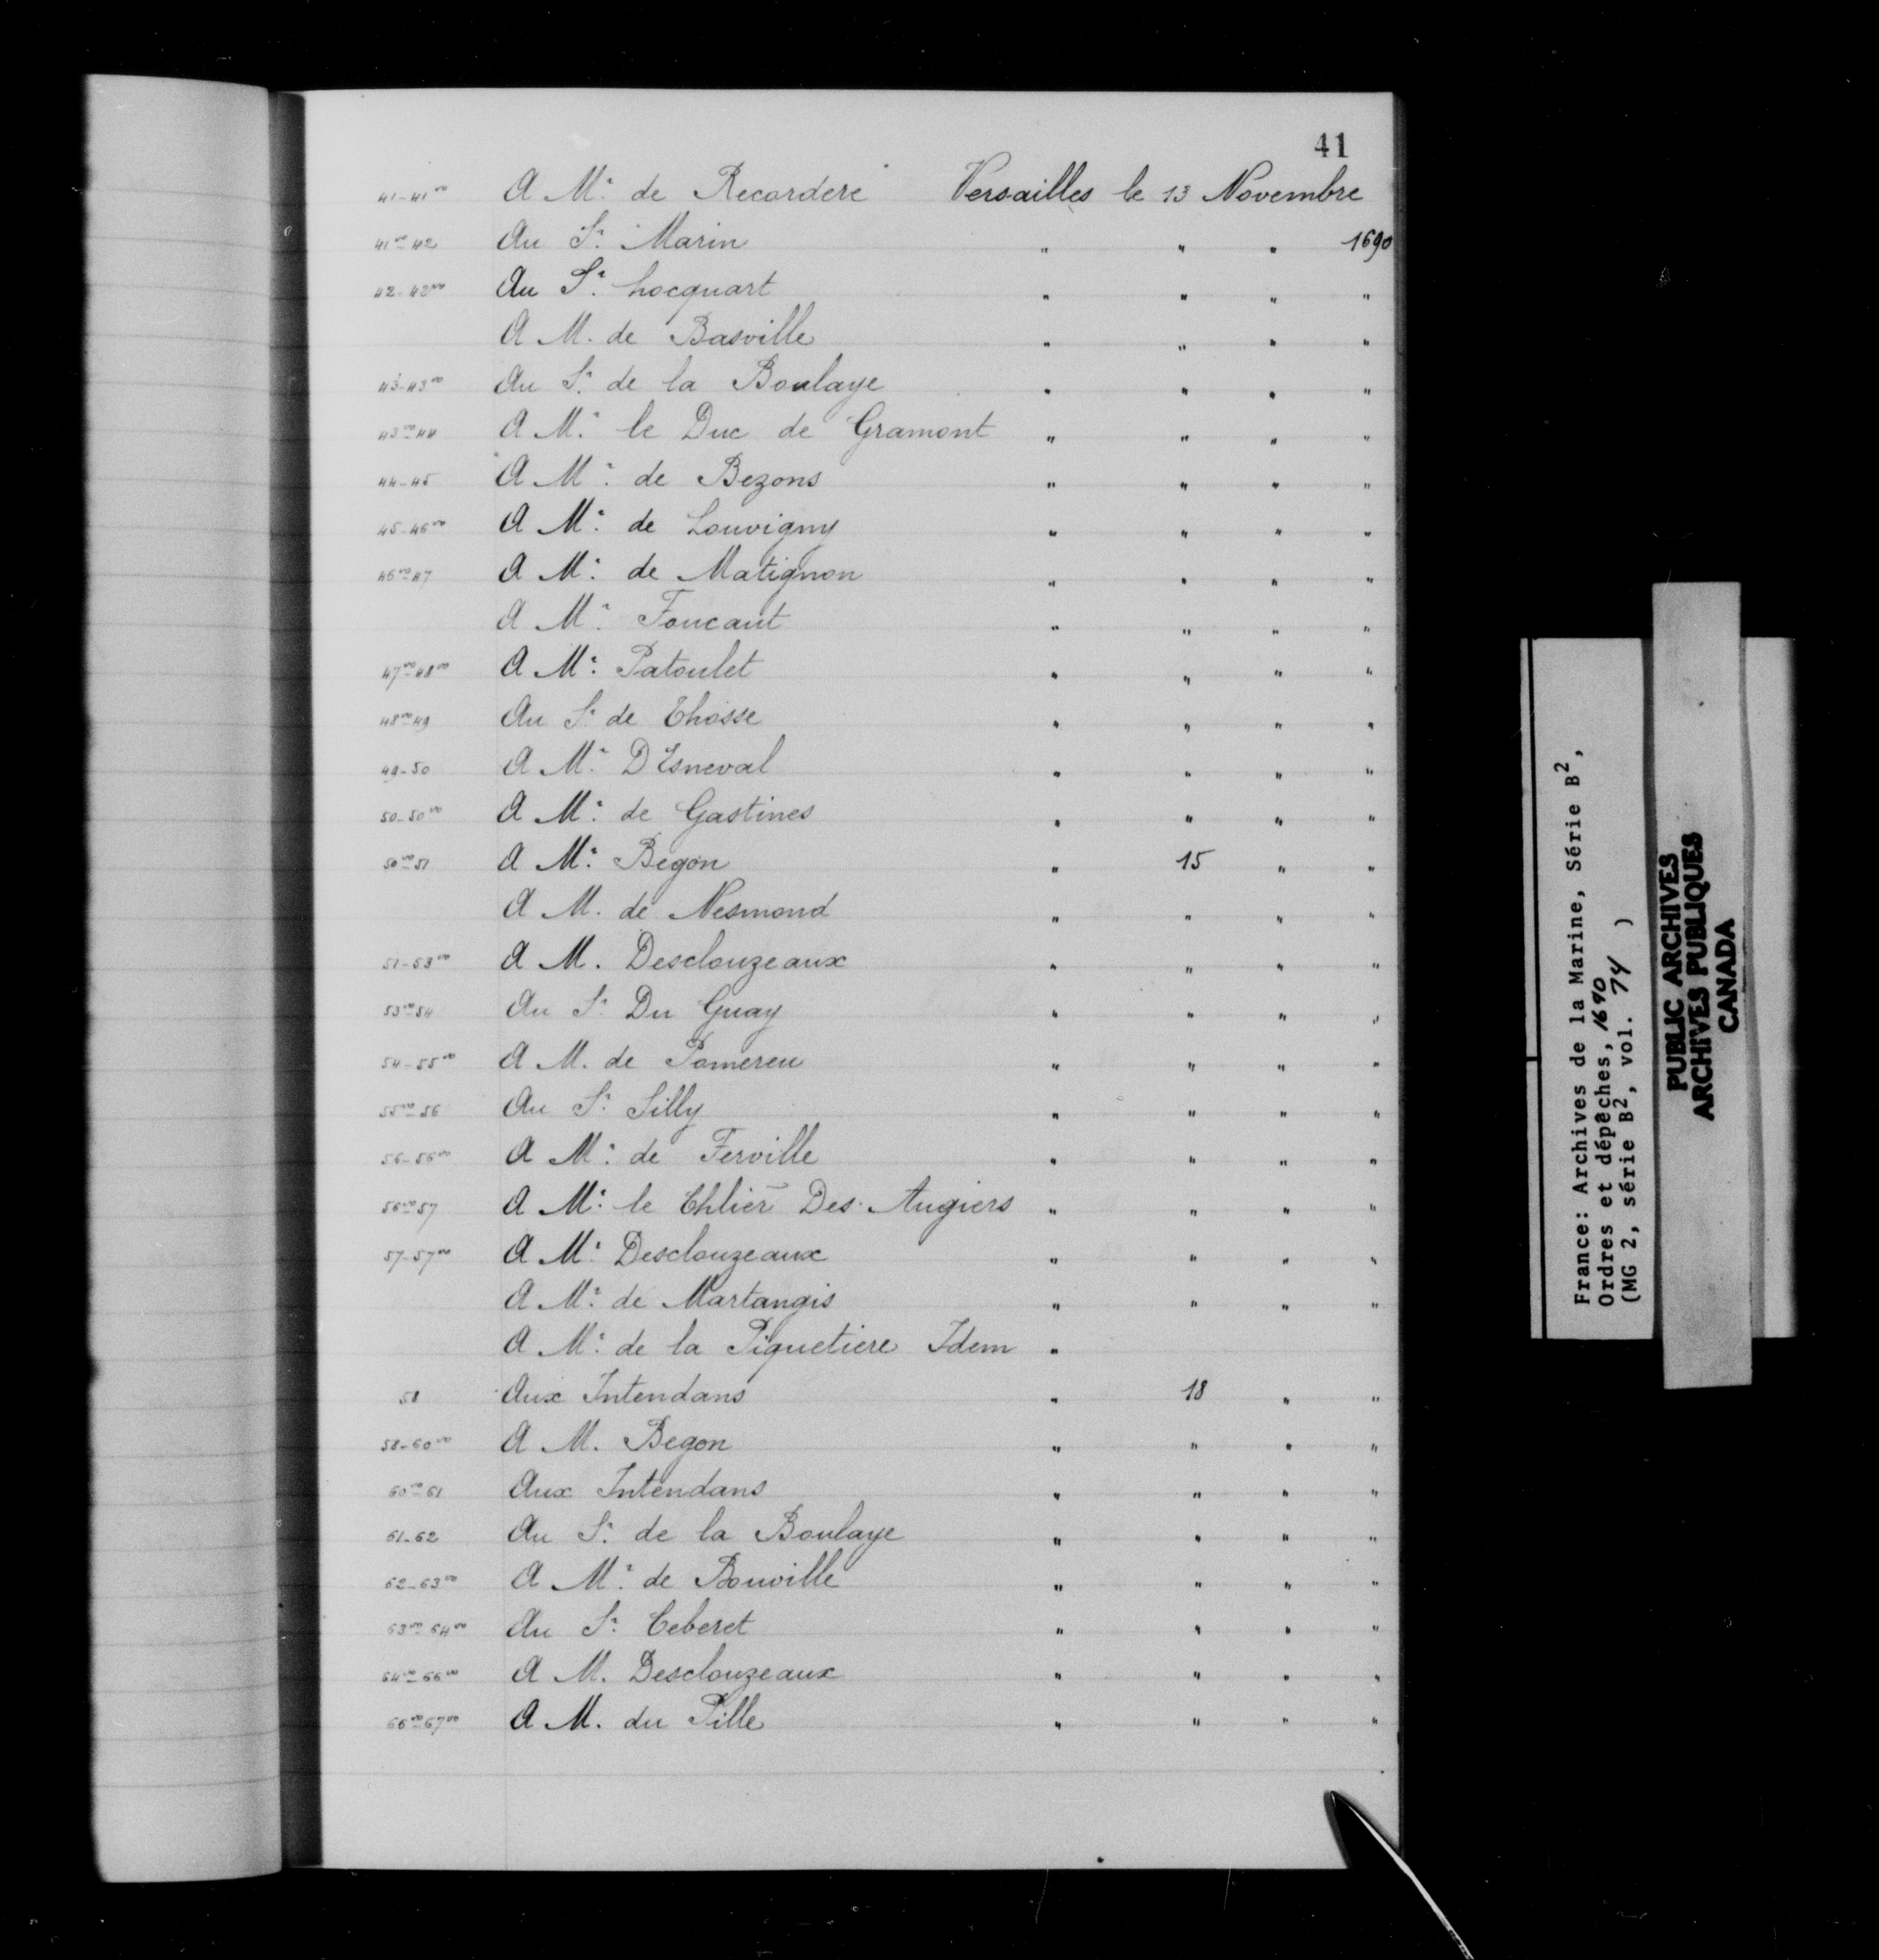 41
41-41vo A Mr. de Recordere Versailles le 13 Novembre
41vo-42 Au Sr. Marin " " " 1690
42-42vo Au Sr. hocquart " " " "
A M. de Basville " " " "
43-43vo Au Sr. de la Boulaye " " " "
43vo-44 A Mr. le Duc de Gramont " " " "
44-45 A Mr. de Bezons " " " "
45-46vo A Mr. de Louvigny " " " "
46vo-47 A Mr. de Matignon " " " "
A Mr. Foucaut " " " "
47vo-48vo A Mr. Patoulet " " " "
48vo-49 Au Sr. de Thosse " " " "
49-50 A Mr. D'Esneval " " " "
50-50vo A Mr. de Gastines " " " "
50vo-51 A Mr. Begon " 15 " "
A M. de Nesmond " " " "
51-53vo A M. Desclouzeaux " " " "
53vo-54 Au Sr. Du Guay " " " "
54-55vo A M. de Pomereu " " " "
55vo-56 Au Sr. Silly " " " "
56-56vo A Mr. de Ferville " " " "
56vo-57 A Mr. le Chlier Des Augiers " " " "
57-57vo A Mr. Desclouzeaux " " " "
A Mr. de Martangis " " " "
A Mr. de la Piquetiere Idem "
58 Aux Intendans " 18 " "
58-60vo A M. Begon " " " "
60vo-61 Aux Intendans " " " "
61-62 Au Sr. de la Boulaye " " " "
62-63vo A Mr. de Bouville " " " "
63vo-64vo Au Sr. Ceberet " " " "
64vo-66vo A M. Desclouzeaux " " " "
66vo-67vo A M. du Pille " " " "
France: Archives de la Marine, Série B2,
Ordres et dépêches, 1690
(MG 2, série B2, vol. 74 )
PUBLIC ARCHIVES
ARCHIVES PUBLIQUES
CANADA